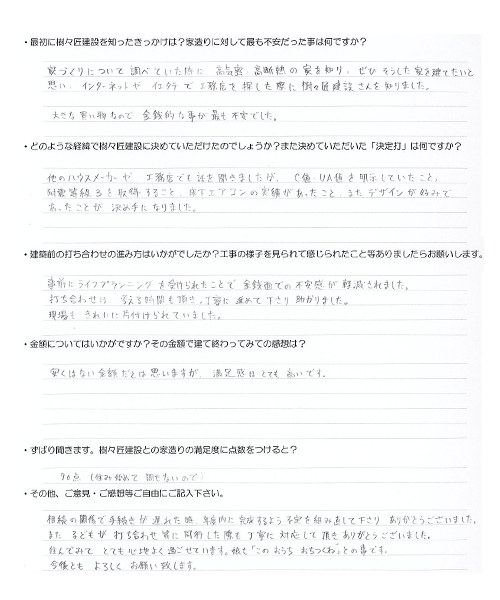 ・最初に樹々匠建設を知ったきっかけは？家造りに対して最も不安だった事は何ですか？
家づくりについて調べていた時に 高気密・高断熱の家を知り、ぜひ そうした家を建てたいと
思い、インターネットや イエタテで 工務店を探した際に 樹々匠建設さんを知りました。
大きな買い物なので 金銭的な事が最も不安でした。
・どのような経緯で樹々匠建設に決めていただけたのでしょうか？また決めていただいた「決定打」は何ですか？
他のハウスメーカーや 工務店でも話を聞きましたが、C値・UA値を明示していたこと、
耐震等級3を取得すること、床下エアコンの実績があったこと、またデザインが好みで
あったことが 決め手になりました。
・建築前の打ち合わせの進み方はいかがでしたか？工事の様子を見られて感じられたこと等ありましたらお願いします。
事前にライフプランニングを受けられたことで 金銭面での不安感が軽減されました。
打ち合わせは 考える時間も頂き、丁寧に進めて下さり助かりました。
現場も きれいに片付けられていました。
・金額についてはいかがですか？その金額で建て終わってみての感想は？
安くはない金額だとは思いますが、満足感はとても高いです。
・ずばり聞きます。樹々匠建設との家造りの満足度に点数をつけると？
90点 (住み始めて 間もないので)
・その他、ご意見・ご感想等ご自由にご記入下さい。
相続の関係で手続きが 遅れた時、年度内に完成するよう予定を組み直して下さり ありがとうございました。
また 子どもが 打ち合わせ等に同行した際も 丁寧に対応して頂き ありがとうございました。
住んでみて とても心地よく過ごせています。娘も「このおうち おちつくね」との事です。
今後とも よろしく お願い致します。